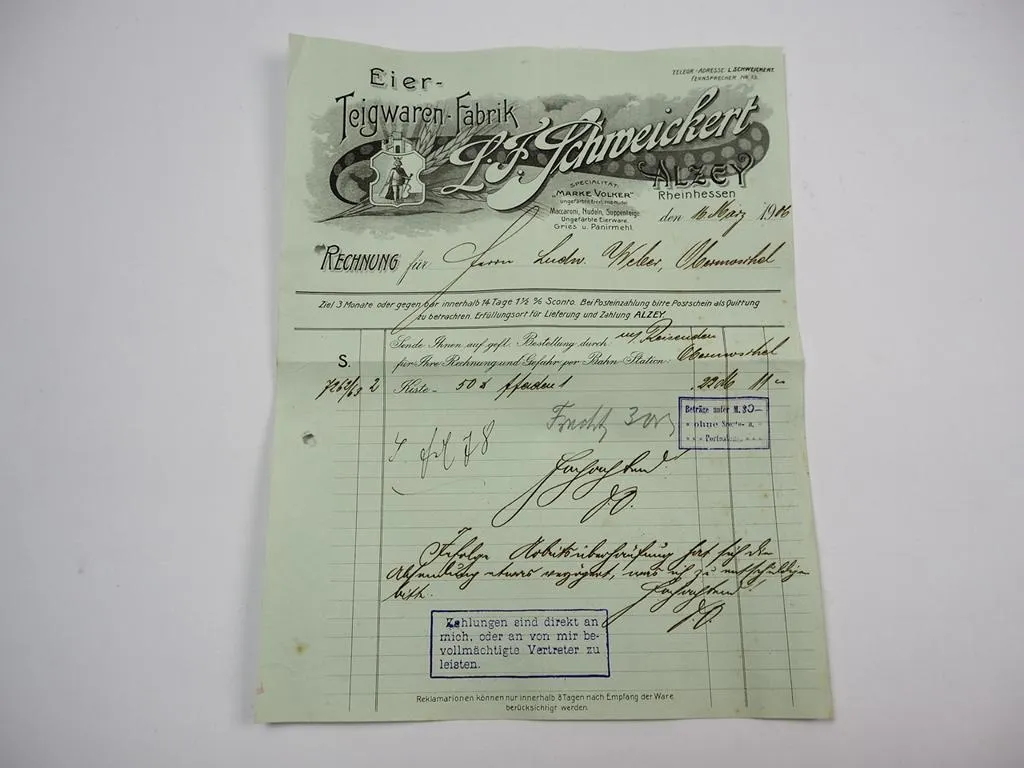 TELEGR.-ADRESSE: L. SCHWEICKERT.
FERNSPRECHER NR. 13.
Eier-
Teigwaren-Fabrik
L. F. Schweickert
ALZEY
Rheinhessen
SPECIALITÄT:
„MARKE VOLKER"
Maccaroni, Nudeln, Suppenteige.
Ungefärbte Eierware.
Gries u. Panirmehl.
den 16 März 1906
RECHNUNG für Herrn Ludw. Weber, Obermoschel
Ziel 3 Monate oder gegen bar innerhalb 14 Tage 1½ % Sconto. Bei Posteinzahlung bitte Postschein als Quittung
zu betrachten. Erfüllungsort für Lieferung und Zahlung ALZEY.
Sende Ihnen auf gefl. Bestellung durch m/ Reisenden
für Ihre Rechnung und Gefahr per Bahn-Station: Obermoschel
S.
7262/63 2 Kiste 50 22 11
Beträge unter M. 30—
ohne
Fracht 30
Hochachtend
Infolge Arbeitsüberhäufung hat sich die
Absendung etwas verzögert, was ich zu entschuldigen
bitte.
Hochachtend
Zahlungen sind direkt an
mich, oder an von mir be-
vollmächtigte Vertreter zu
leisten.
Reklamationen können nur innerhalb 8 Tagen nach Empfang der Ware
berücksichtigt werden.